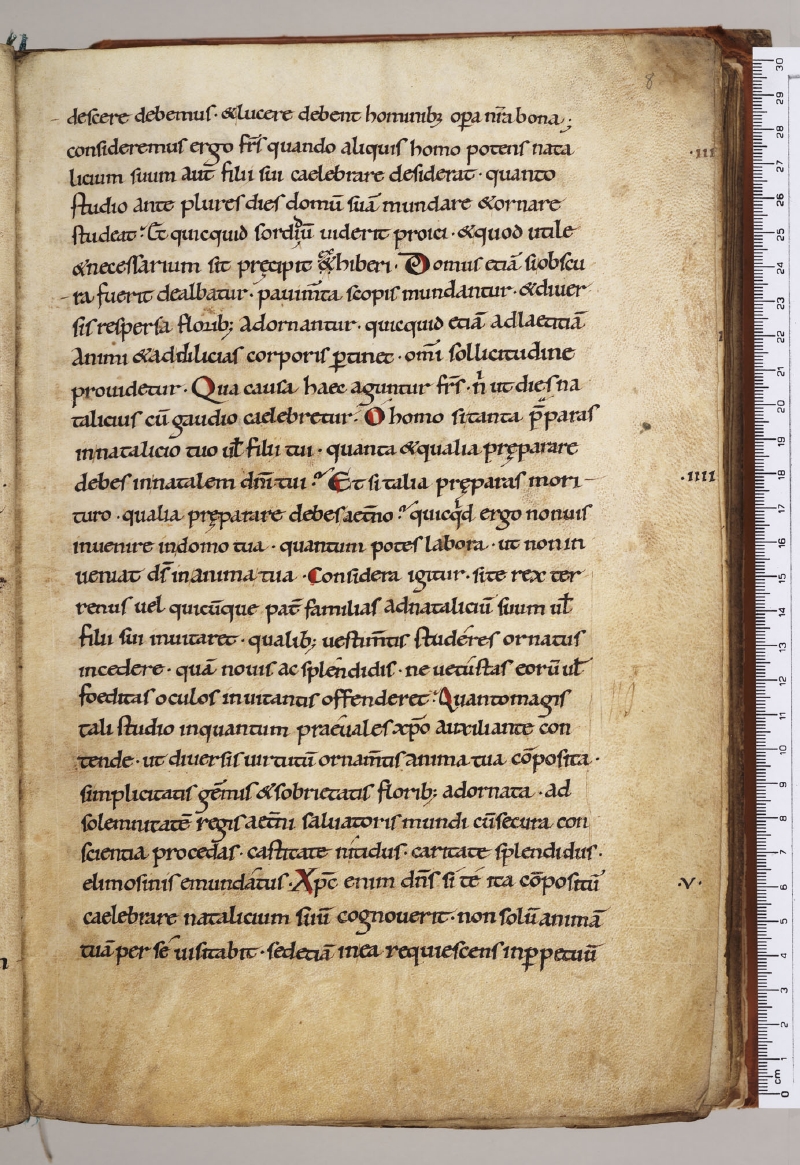 8
descere debemus · &lucere debent hominib; opa nr̄a bona ;
consideremus ergo fr̄s quando aliquis homo potens nata
·III
licium suum aut filii sui caelebrare desiderat · quanto
studio ante plures dies domū suā mundare &ornare
studeat · Et quicquid sordidū uiderit proici · &quod utile
&necessarium sit pręcipit exhiberi · Domus etiā si obscu
ra fuerit dealbatur · pauim̄ta scopis mundantur · &diuer
sis respersa florib; adornantur · quicquid etiā adlaetitiā
animi &addilicias corporis ꝑtinet · om̄i sollicitudine
prouidetur · Qua causa haec aguntur fr̄s · n̄ ut dies na
talicius cū gaudio caelebretur · O homo si tanta p̄paras
innatalicio tuo ul̄ filii tui · quanta &qualia pręparare
debes innatalem dn̄i tui · Et si talia pręparas mori
·IIII
turo · qualia pręparare debes aet̄no · quicqd ergo nonuis
inuenire indomo tua · quantum potes labora · ut non in
ueniat dS̄ inanima tua · Considera igitur · site rex ter
renus uel quicūque pat̄ familias adnataliciū suum ul̄
filii sui inuitaret · qualib; uestim̄tis studéres ornatus
incedere · quā nouis ac splendidis · ne uetustas eorū ul̄
foeditas oculos inuitantis offenderet · Quanto magis
tali studio inquantum praeuales xp̄o auxiliante con
tende · ut diuersis uirtutū ornam̄tis anima tua cōposita ·
simplicitatis gēmis &sobrietatis florib; adornata · ad
solemnitatē regis aet̄ni saluatoris mundi cū secura con
scientia procedas · castitate nitidus · caritate splendidus ·
elimosinis emundatus · Xp̄c enim dn̄s si te ita cōpositū
·V·
caelebrare natalicium suū cognouerit · non solū animā
tuā per sé uisitabit · sed etiā inea requiescens inꝑpetuū